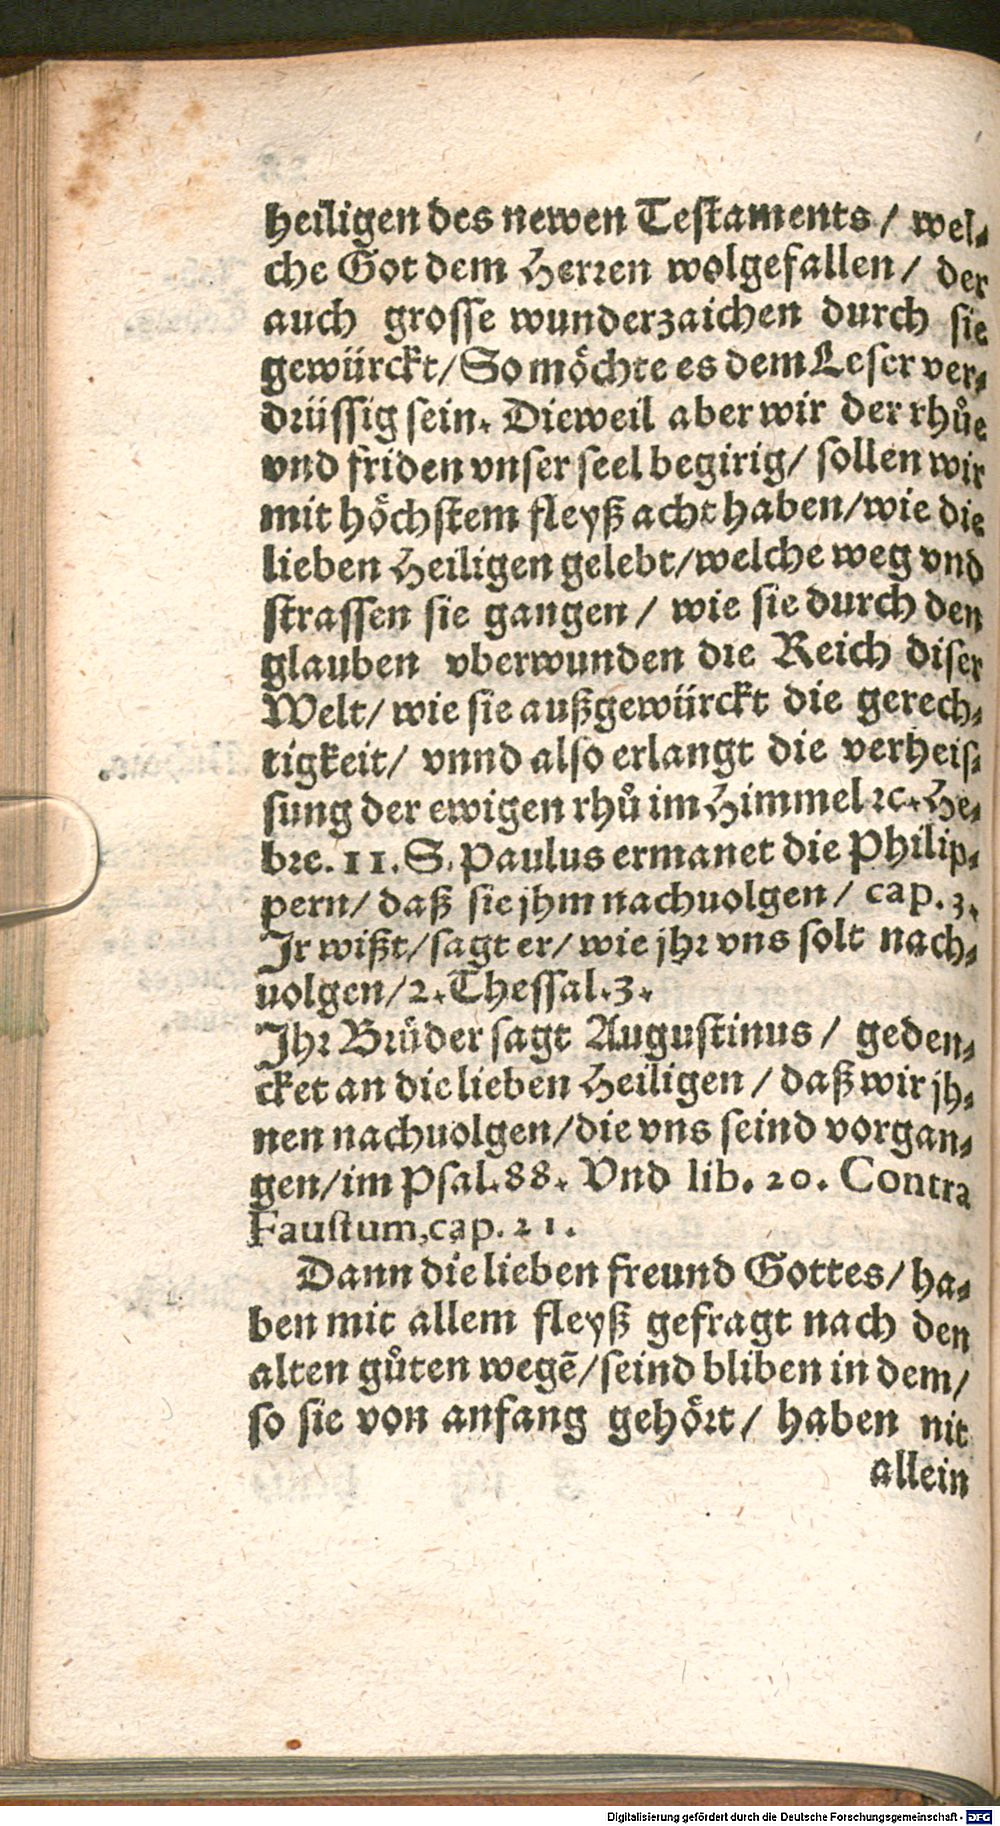 heiligen des newen Testaments / wel-
che Got dem Herren wolgefallen / der
auch grosse wunderzaichen durch sie
gewürckt / So möchte es dem Leser ver-
drüssig sein. Dieweil aber wir der rhůe
vnd friden vnser seel begirig / sollen wir
mit höchstem fleyß acht haben / wie die
lieben Heiligen gelebt / welche weg vnd
strassen sie gangen / wie sie durch den
glauben vberwunden die Reich diser
Welt / wie sie außgewürckt die gerech-
tigkeit / vnnd also erlangt die verheis-
sung der ewigen rhů im Himmel ꝛc. He-
bre. 11. S. Paulus ermanet die Philip-
pern / daß sie jhm nachuolgen / cap. 3.
Jr wißt / sagt er / wie jhr vns solt nach-
uolgen / 2. Thessal. 3.
Jhr Brůder sagt Augustinus / geden-
cket an die lieben Heiligen / daß wir jh-
nen nachuolgen / die vns seind vorgan-
gen / im Psal. 88. Vnd lib. 20. Contra
Faustum, cap. 21.
Dann die lieben freund Gottes / ha-
ben mit allem fleyß gefragt nach den
alten gůten wegē / seind bliben in dem /
so sie von anfang gehört / haben nit
allein
Digitalisierung gefördert durch die Deutsche Forschungsgemeinschaft - DFG